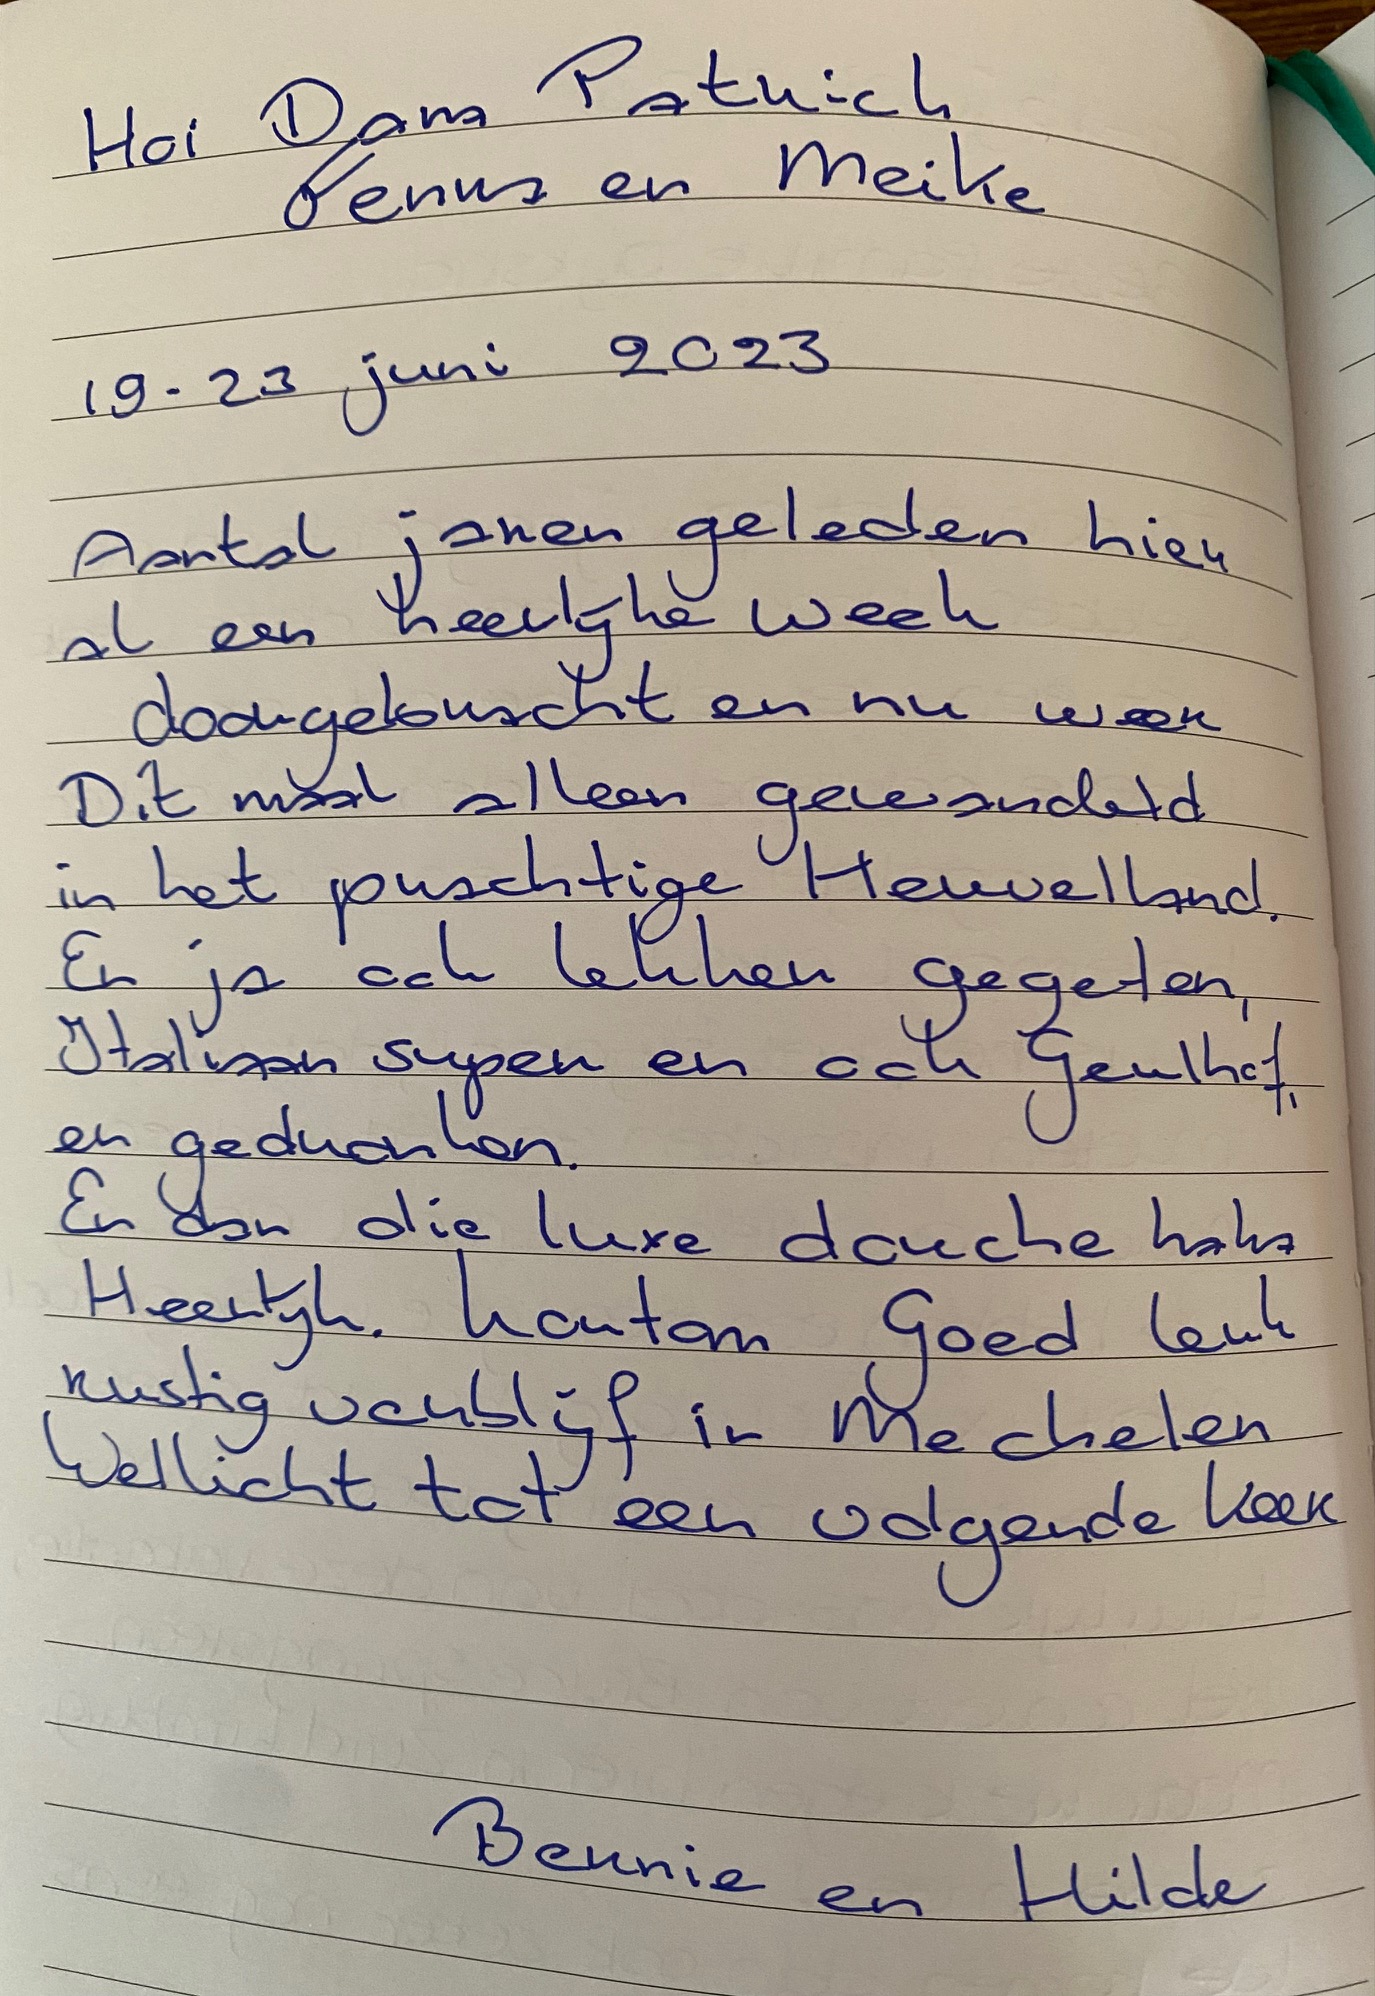 Hoi Dana Patrick
Fenna en Meike
19-23 juni 2023
Aantal jaren geleden hier
al een heerlijke week
doorgebracht en nu weer
Dit maal alleen gewandeld
in het prachtige Heuvelland.
En ja ook lekker gegeten,
Italiaan super en ook Geulhof,
en gedronken.
En dan die luxe douche haha
Heerlijk. kortom Goed leuk
rustig verblijf in Mechelen
Wellicht tot een volgende keer
Bennie en Hilde